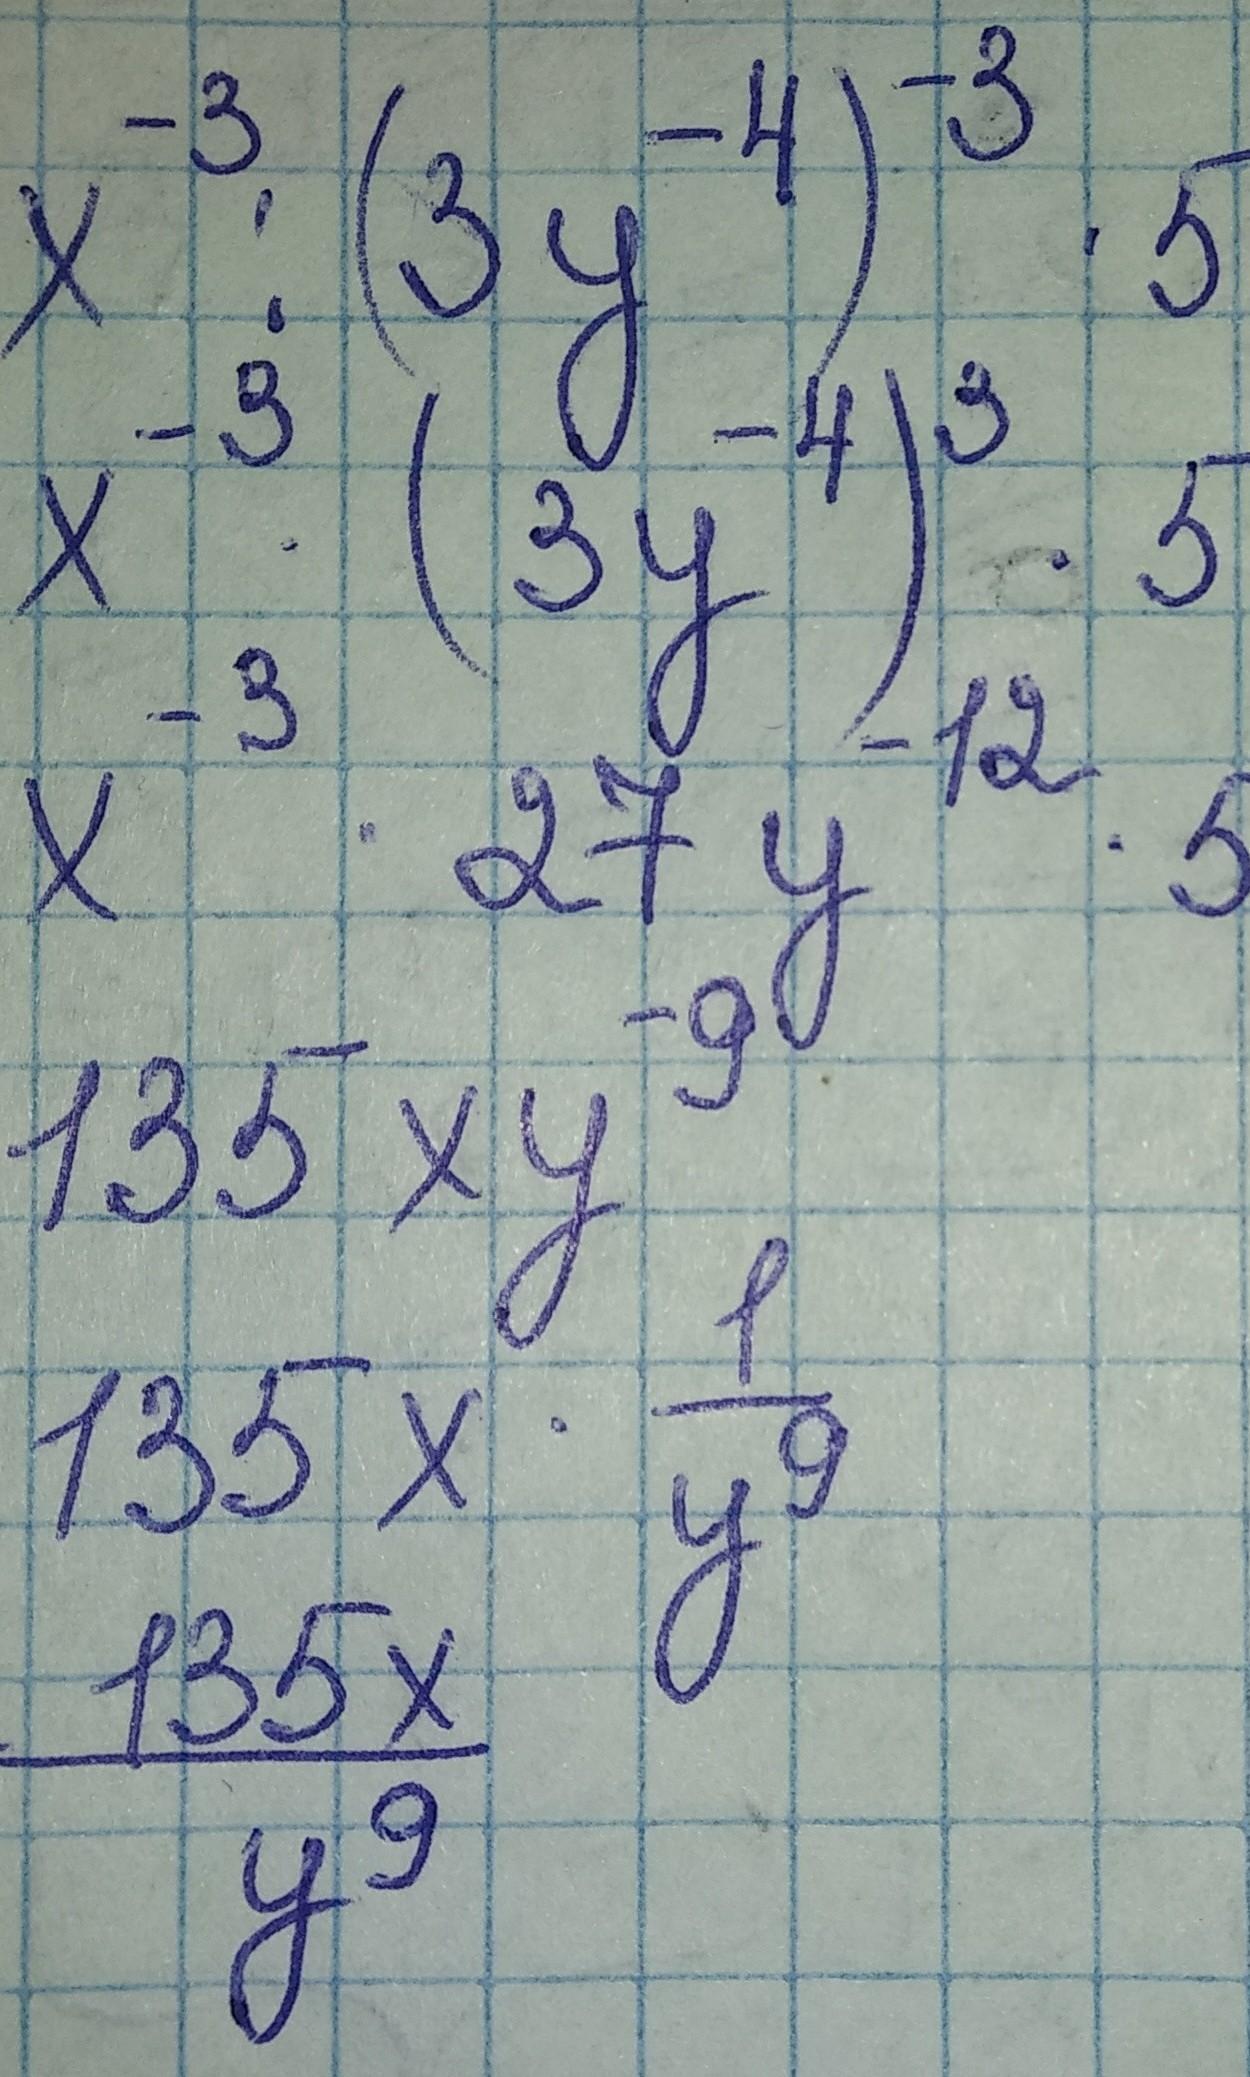 x⁻³ : (3y⁻⁴)⁻³ · 5
x⁻³ · (3y⁻⁴)³ · 5
x⁻³ · 27y⁻¹² · 5
135xy⁻⁹
135x · 1/y⁹
135x/y⁹